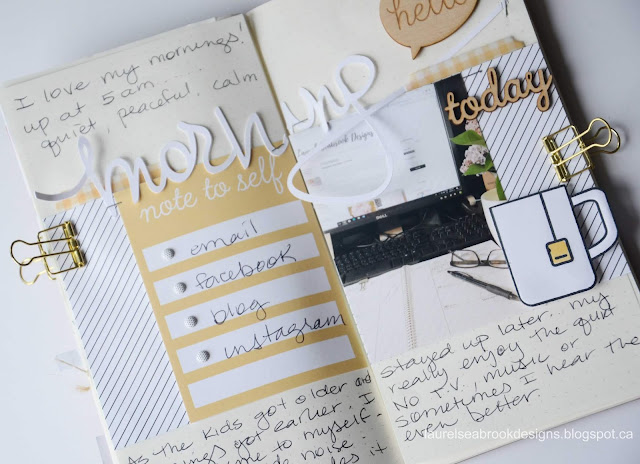 I love my mornings!
up at 5 am...
quiet, peaceful, calm
morning
note to self
email
facebook
blog
instagram
As the kids got older and
got earlier. I
me to myself-
noise
it
hello
today
DELL
stayed up later... my
really enjoy the quiet
No T.V, music or
sometimes I hear the
even better.
laurelseabrookdesigns.blogspot.ca